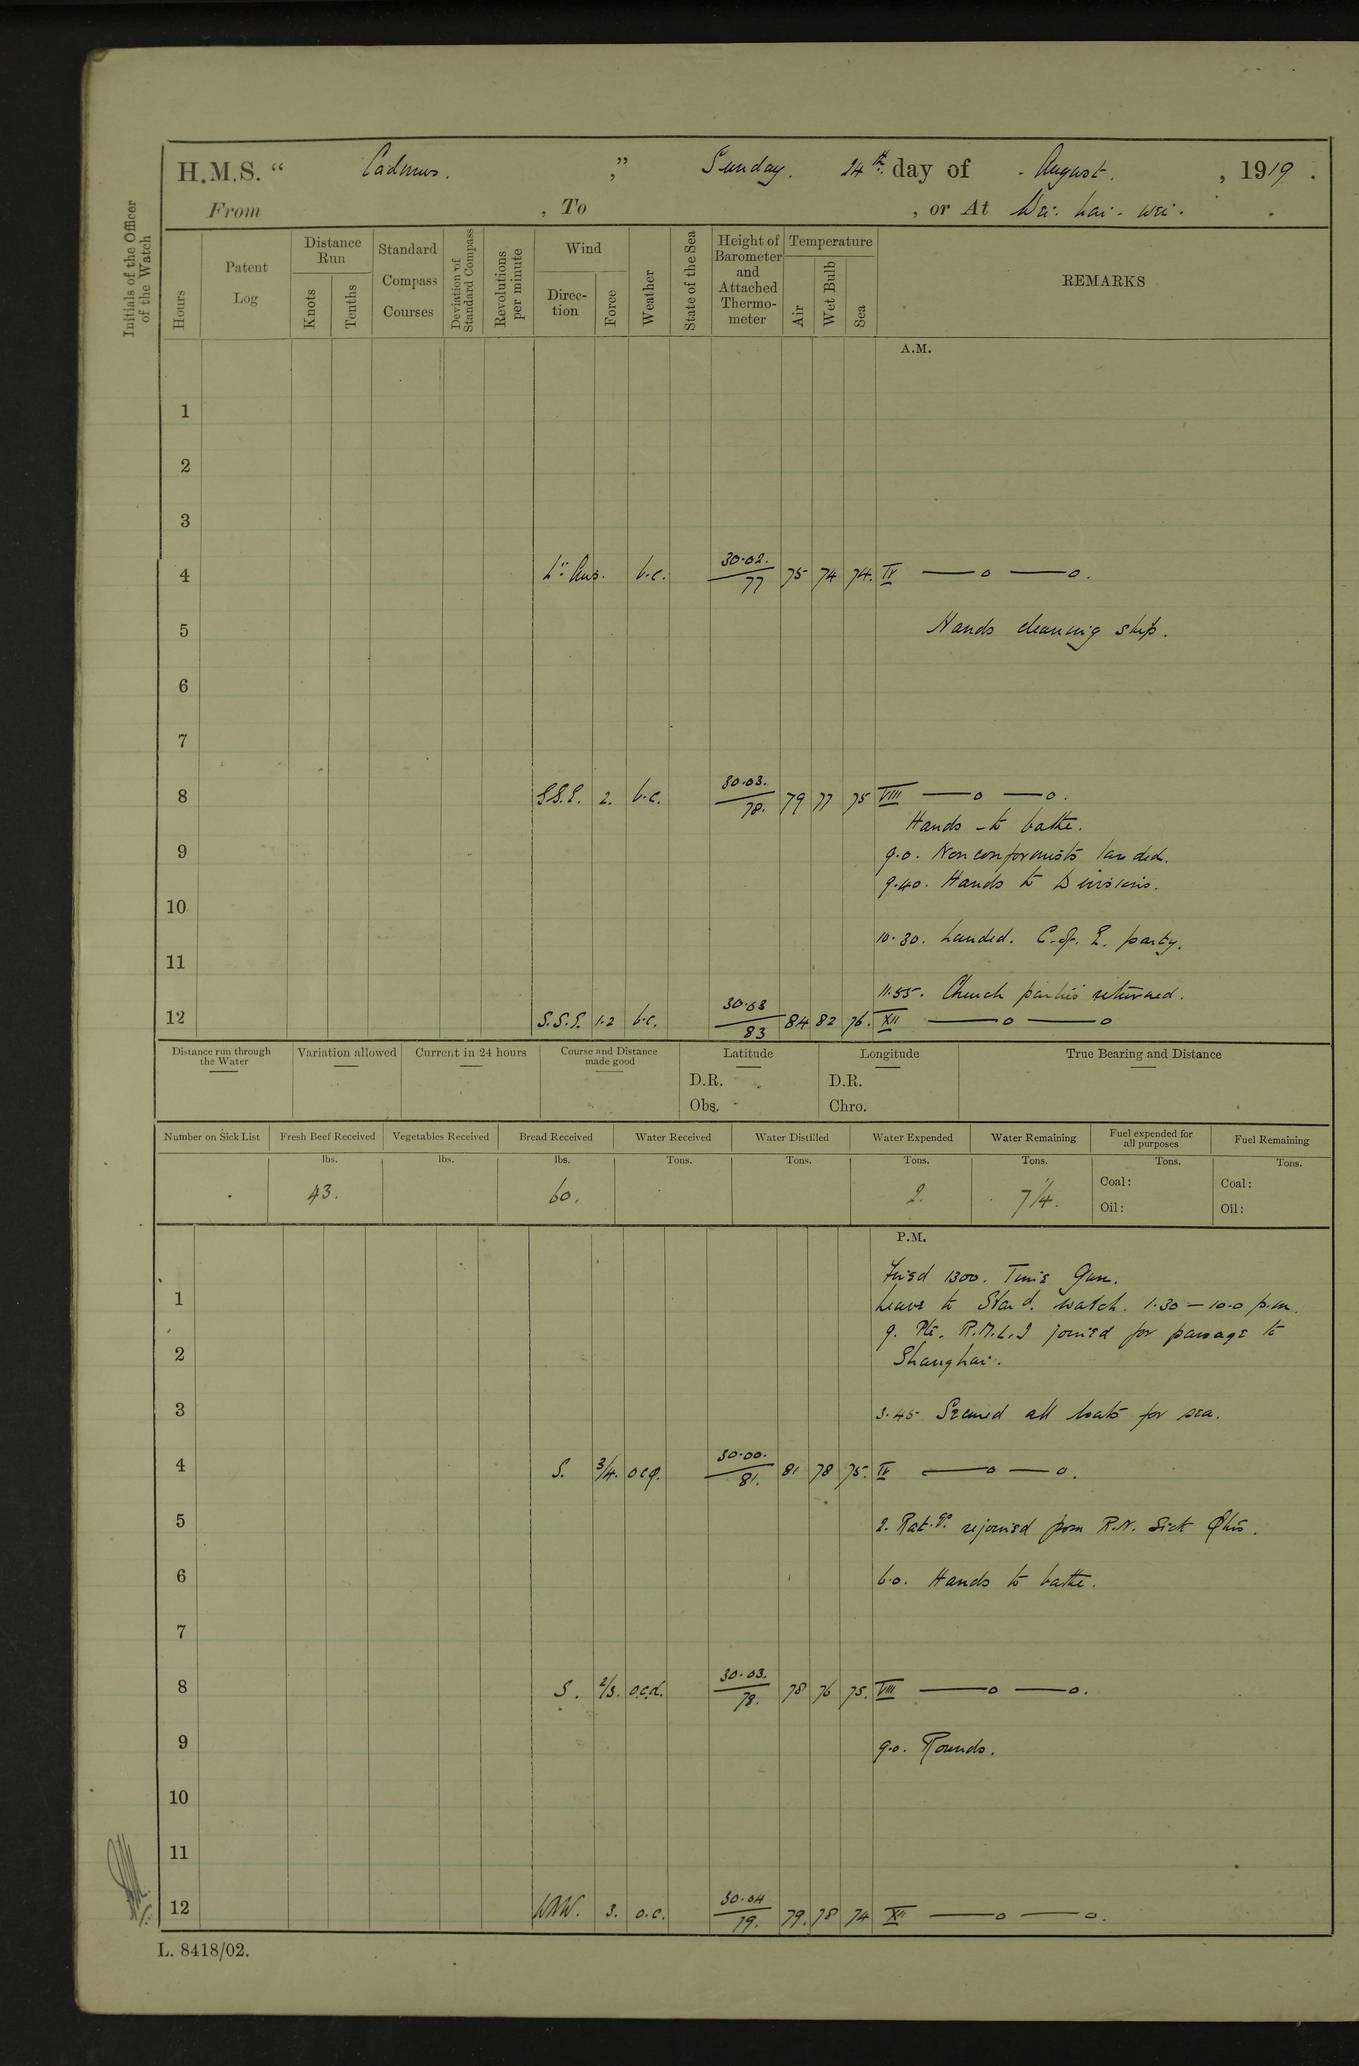 H.M.S. “ Cadmus. ,” Sunday. 24th. day of August. , 1919 .
From , To , or At Wei. hai. wei.
Initials of the Officer of the Watch
Hours
Patent Log
Distance Run
Knots
Tenths
Standard Compass Courses
Deviation of Standard Compass
Revolutions per minute
Wind
Direction
Force
Weather
State of the Sea
Height of Barometer and Attached Thermometer
Temperature
Air
Wet Bulb
Sea
REMARKS
A.M.
1
2
3
4 Lt. Airs. b.c. 30.02. 77 75 74 74. IV —o —o.
5 Hands cleaning ship.
6
7
8 S.S.E. 2. b.c. 30.03. 78. 79 77 75 VIII —o —o.
Hands to bathe.
9 9.0. Nonconformists landed.
9.40. Hands to Divisions.
10
10.30. Landed. C. of. E. party.
11
11.55. Church parties returned.
12 S.S.E. 1.2 b.c. 30.03 83 84 82 76. XII —o —o
Distance run through the Water
Variation allowed
Current in 24 hours
Course and Distance made good
Latitude
D.R.
Obs.
Longitude
D.R.
Chro.
True Bearing and Distance
Number on Sick List
Fresh Beef Received
Vegetables Received
Bread Received
Water Received
Water Distilled
Water Expended
Water Remaining
Fuel expended for all purposes
Fuel Remaining
lbs. lbs. lbs. Tons. Tons. Tons. Tons. Tons. Tons.
43. 60. 2. 71/4.
Coal: Coal:
Oil: Oil:
P.M.
Fired 1300. Time Gun.
1 Leave to Stard. watch. 1.30 — 10.0 p.m.
9. Pte. R.M.L.I joined for passage to
2 Shanghai.
3 3.45 Secured all boats for sea.
4 S. 3/4. ocq. 30.00. 81. 81 78 75. IV —o —o.
5 2. Rat.gs rejoined from R.N. Sick Qtrs.
6 6.0. Hands to bathe.
7
8 S. 2/3. o.c.d. 30.03. 78. 78 76 75. VIII —o —o.
9 9.0. Rounds.
10
11
12 WNW. 3. o.c. 30.04 79. 79. 78 74 XII —o —o.
L. 8418/02.